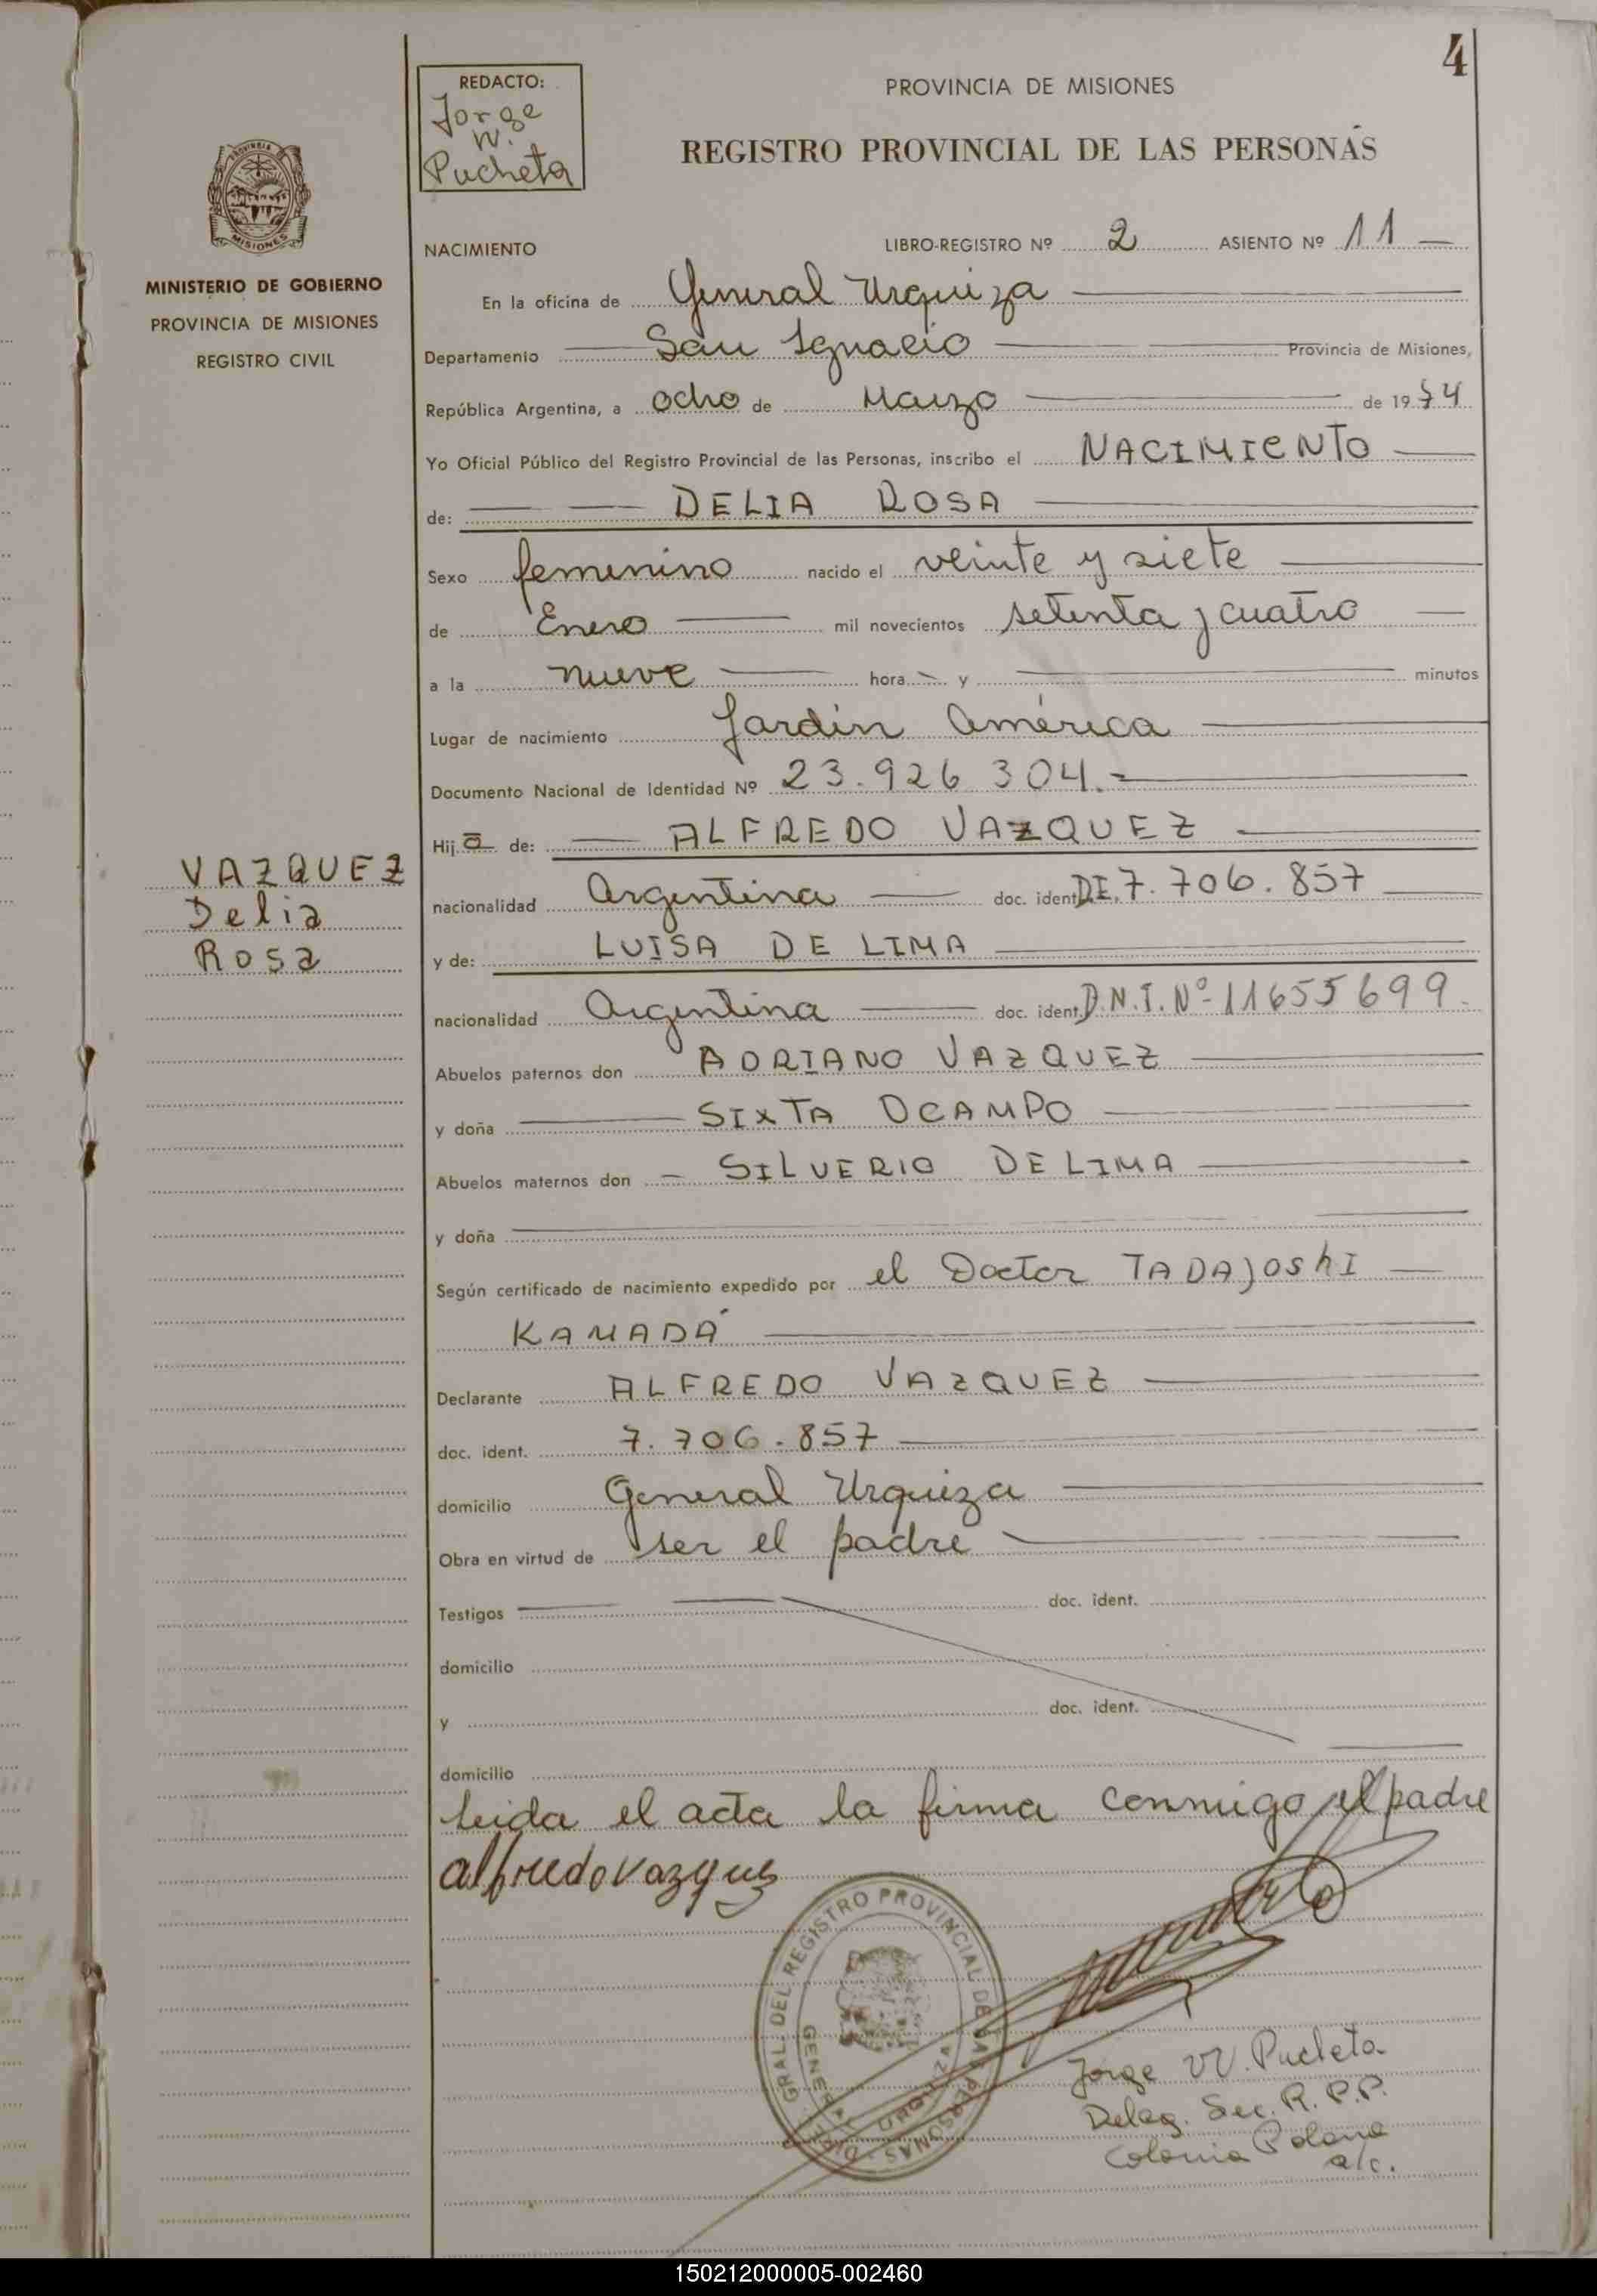 4
REDACTO:
Jorge
W.
Pucheta
PROVINCIA DE MISIONES
REGISTRO PROVINCIAL DE LAS PERSONAS
PROVINCIA
MISIONES
MINISTERIO DE GOBIERNO
PROVINCIA DE MISIONES
REGISTRO CIVIL
NACIMIENTO LIBRO-REGISTRO Nº 2 ASIENTO Nº 11
En la oficina de General Urquiza
Departamento San Ignacio Provincia de Misiones,
República Argentina, a ocho de Marzo de 1974
Yo Oficial Público del Registro Provincial de las Personas, inscribo el NACIMIENTO
de: DELIA ROSA
Sexo femenino nacido el veinte y siete
de Enero mil novecientos setenta y cuatro
a la nueve hora y minutos
Lugar de nacimiento Jardín América
Documento Nacional de Identidad Nº 23.926 304.-
Hija de: ALFREDO VAZQUEZ
VAZQUEZ
Delia
Rosa
nacionalidad Argentina doc. ident. DI. 7.706.857
y de: LUISA DE LIMA
nacionalidad Argentina doc. ident. D.N.I. Nº 11655699
Abuelos paternos don ADRIANO VAZQUEZ
y doña SIXTA OCAMPO
Abuelos maternos don SILVERIO DE LIMA
y doña
Según certificado de nacimiento expedido por el Doctor TADAJOShI
KAMADA
Declarante ALFREDO VAZQUEZ
doc. ident. 7.706.857
domicilio General Urquiza
Obra en virtud de ser el padre
Testigos doc. ident.
domicilio
y doc. ident.
domicilio
Leida el acta la firma conmigo el padre
alfredo vazquez
DIR. GRAL. DEL REGISTRO PROVINCIAL DE LAS PERSONAS
GENERAL URQUIZA
Jorge W. Pucheta
Deleg. Sec. R.P.P.
Colonia Polana
a/c.
150212000005-002460